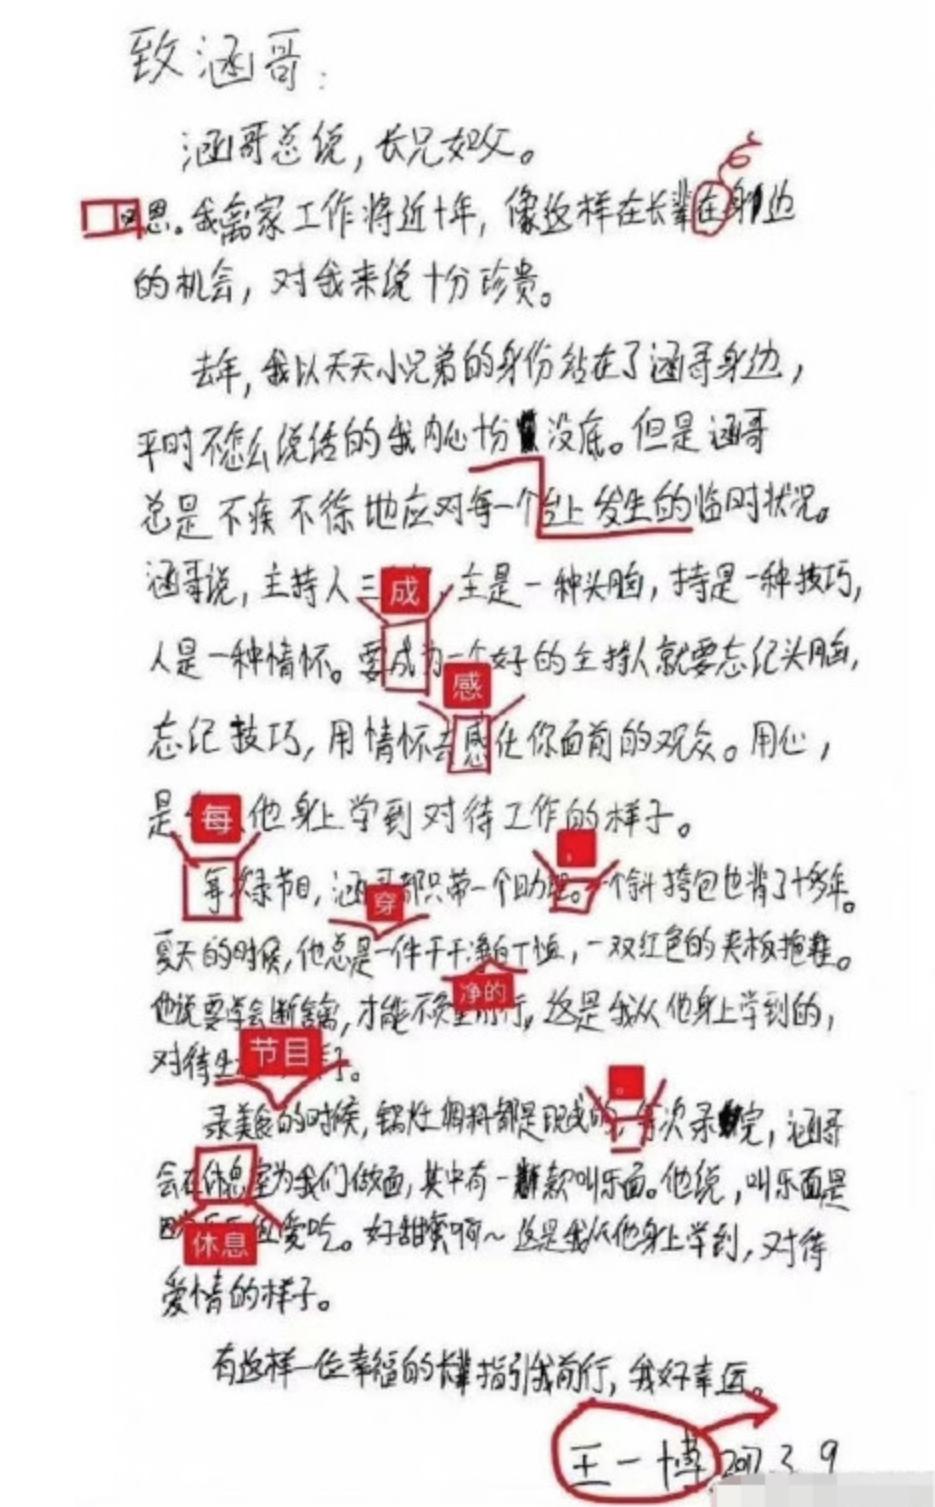 致涵哥:
涵哥总说,长兄如父。
恩。我离家工作将近十年,像这样在长辈在身边
的机会,对我来说十分珍贵。
去年,我以天天小兄弟的身份站在了涵哥身边,
平时不怎么说话的我内心十分没底。但是涵哥
总是不疾不徐地应对每一个台上发生的临时状况。
涵哥说,主持人三成,主是一种头脑,持是一种技巧,
人是一种情怀。要成为一个好的主持人就要忘记头脑,
感
忘记技巧,用情怀去感化你面前的观众。用心,
是每他身上学到对待工作的样子。
,
每次录节目,涵哥都只带一个助理。一个斜挎包也背了十多年。
穿
夏天的时候,他总是一件干干净的T恤,一双红色的夹板拖鞋。
净的
他说要学会断舍离,才能不负重前行,这是我从他身上学到的,
对待生节目子。
。
录美食的时候,锅灶调料都是现成的,每次录完,涵哥
会在休息室为我们做面,其中有一款叫乐面。他说,叫乐面是
因爱吃。好甜蜜啊~这是我从他身上学到,对待
休息
爱情的样子。
有这样一位幸福的长辈指引我前行,我好幸运。
王一博 2017.3.9